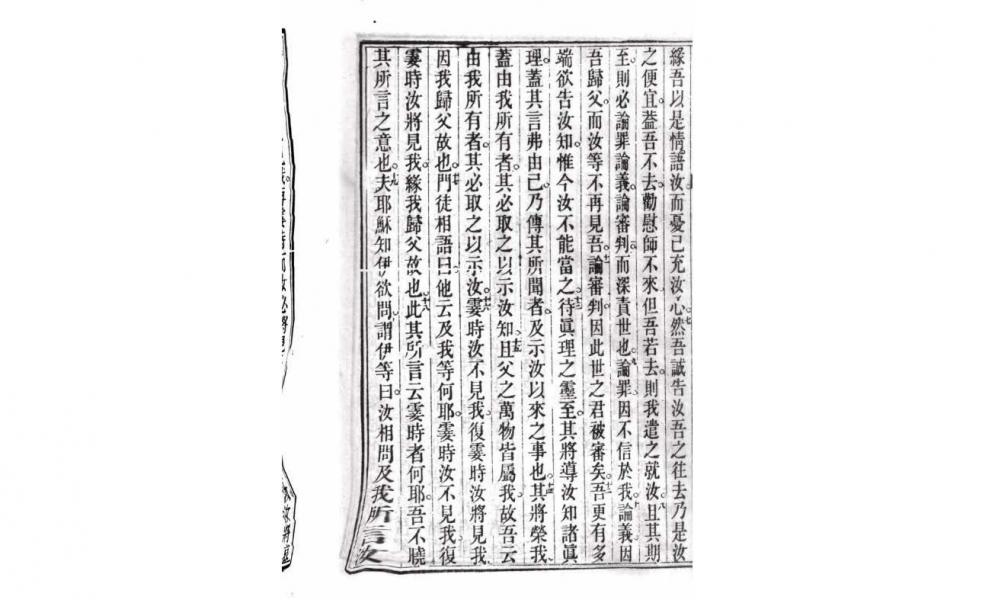 緣吾以是情語汝而憂已充汝心七然吾誠告汝吾之往去乃是汝
之便宜葢吾不去勸慰師不來但吾若去則我遣之就汝八且其期
至則必論罪論義論審判而深責世也九論罪因不信於我十論義因
吾歸父而汝等不再見吾十一論審判因此世之君被審矣十二吾更有多
端欲告汝知惟今汝不能當之十三待眞理之靈至其將導汝知諸眞
理蓋其言弗由己乃傳其所聞者及示汝以來之事也十四其將榮我
蓋由我所有者其必取之以示汝知十五且父之萬物皆屬我故吾云
由我所有者其必取之以示汝十六霎時汝不見我復霎時汝將見我
因我歸父故也十七門徒相語曰他云及我等何耶霎時汝不見我復
霎時汝將見我緣我歸父故也十八此其所言云霎時者何耶吾不曉
其所言之意也十九夫耶穌知伊欲問謂伊等曰汝相問及我所言汝